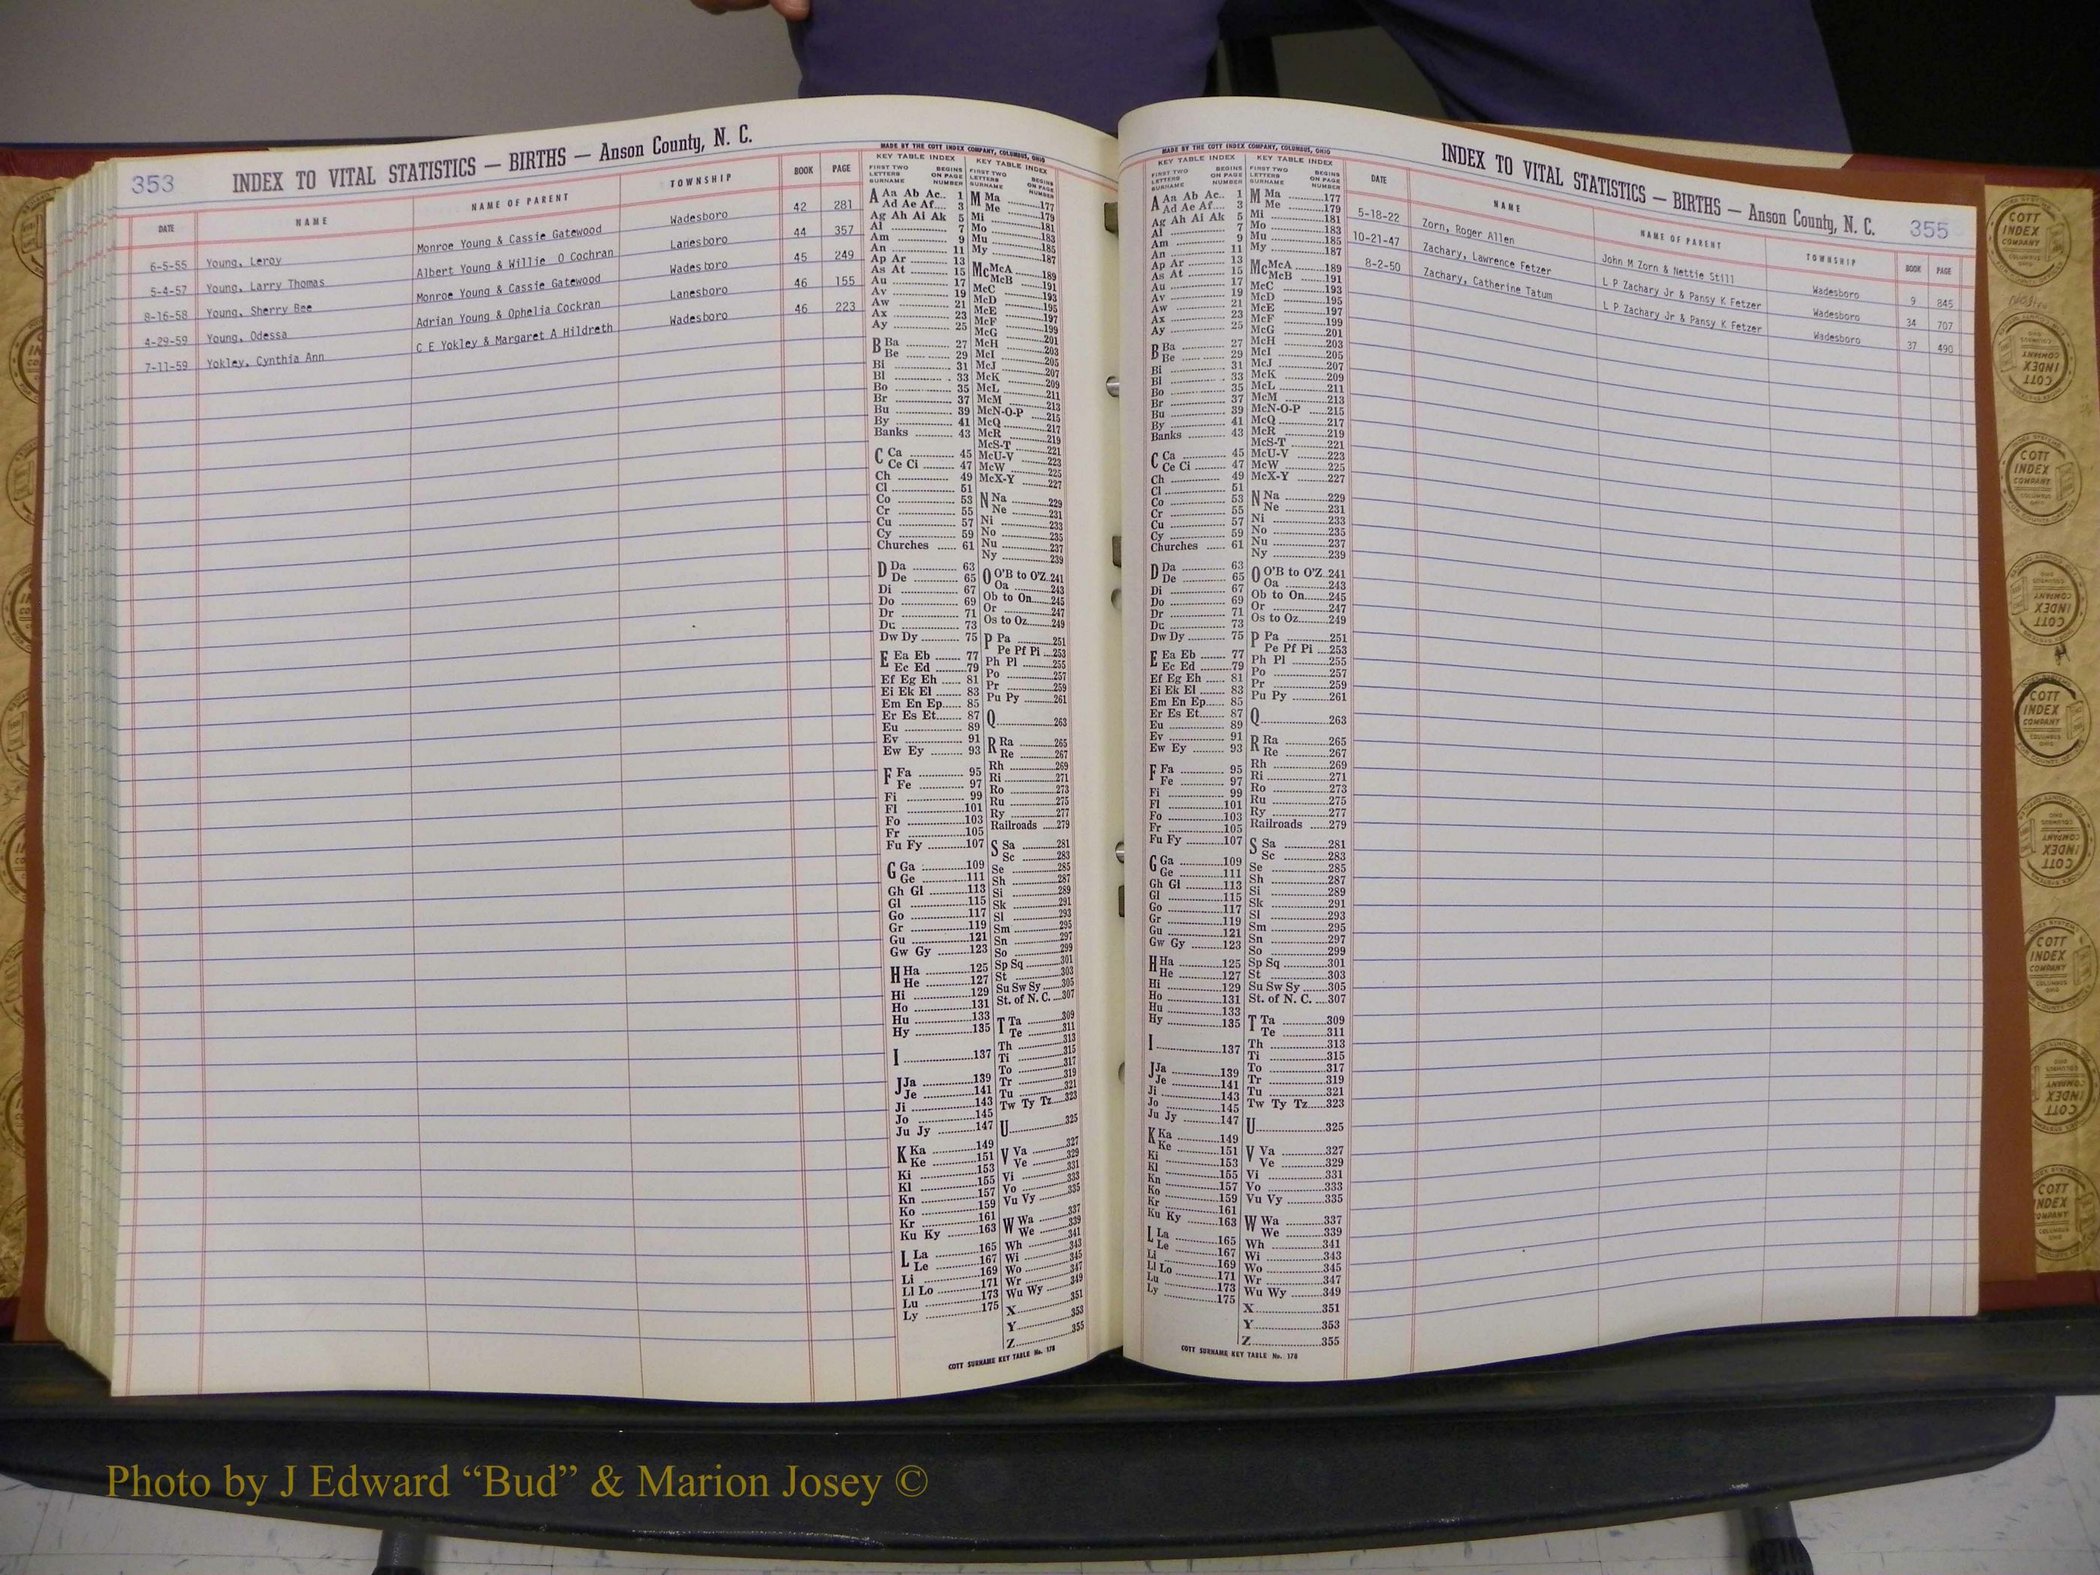 353 INDEX TO VITAL STATISTICS — BIRTHS — Anson County, N. C.
DATE NAME NAME OF PARENT TOWNSHIP BOOK PAGE
6-5-55 Young, Leroy Monroe Young & Cassie Gatewood Wadesboro 42 281
5-4-57 Young, Larry Thomas Albert Young & Willie O Cochran Lanesboro 44 357
8-16-58 Young, Sherry Bee Monroe Young & Cassie Gatewood Wadesboro 45 249
4-29-59 Young, Odessa Adrian Young & Ophelia Cockran Lanesboro 46 155
7-11-59 Yokley, Cynthia Ann C E Yokley & Margaret A Hildreth Wadesboro 46 223
MADE BY THE COTT INDEX COMPANY, COLUMBUS, OHIO
KEY TABLE INDEX KEY TABLE INDEX
FIRST TWO LETTERS SURNAME BEGINS ON PAGE NUMBER
A Aa Ab Ac.. 1
Ad Ae Af.... 3
Ag Ah Ai Ak 5
Al 7
Am 9
An 11
Ap Ar 13
As At 15
Au 17
Av 19
Aw 21
Ax 23
Ay 25
B Ba 27
Be 29
Bi 31
Bl 33
Bo 35
Br 37
Bu 39
By 41
Banks 43
C Ca 45
Ce Ci 47
Ch 49
Cl 51
Co 53
Cr 55
Cu 57
Cy 59
Churches 61
D Da 63
De 65
Di 67
Do 69
Dr 71
Du 73
Dw Dy 75
E Ea Eb 77
Ec Ed 79
Ef Eg Eh 81
Ei Ek El 83
Em En Ep 85
Er Es Et 87
Eu 89
Ev 91
Ew Ey 93
F Fa 95
Fe 97
Fi 99
Fl 101
Fo 103
Fr 105
Fu Fy 107
G Ga 109
Ge 111
Gh Gi 113
Gl 115
Go 117
Gr 119
Gu 121
Gw Gy 123
H Ha 125
He 127
Hi 129
Ho 131
Hu 133
Hy 135
I 137
J Ja 139
Je 141
Ji 143
Jo 145
Ju Jy 147
K Ka 149
Ke 151
Ki 153
Kl 155
Kn 157
Ko 159
Kr 161
Ku Ky 163
L La 165
Le 167
Li 169
Ll Lo 171
Lu 173
Ly 175
M Ma 177
Me 179
Mi 181
Mo 183
Mu 185
My 187
Mc McA 189
McB 191
McC 193
McD 195
McE 197
McF 199
McG 201
McH 203
McI 205
McJ 207
McK 209
McL 211
McM 213
McN-O-P 215
McQ 217
McR 219
McS-T 221
McU-V 223
McW 225
McX-Y 227
N Na 229
Ne 231
Ni 233
No 235
Nu 237
Ny 239
O O'B to O'Z 241
Oa 243
Ob to On 245
Or 247
Os to Oz 249
P Pa 251
Pe Pf Pi 253
Ph Pl 255
Po 257
Pr 259
Pu Py 261
Q 263
R Ra 265
Re 267
Rh 269
Ri 271
Ro 273
Ru 275
Ry 277
Railroads 279
S Sa 281
Sc 283
Se 285
Sh 287
Si 289
Sk 291
Sl 293
Sm 295
Sn 297
So 299
Sp Sq 301
St 303
Su Sw Sy 305
St. of N. C. 307
T Ta 309
Te 311
Th 313
Ti 315
To 317
Tr 319
Tu 321
Tw Ty Tz 323
U 325
V Va 327
Ve 329
Vi 331
Vo 333
Vu Vy 335
W Wa 337
We 339
Wh 341
Wi 343
Wo 345
Wr 347
Wu Wy 349
X 351
Y 353
Z 355
COTT SURNAME KEY TABLE No. 178
INDEX TO VITAL STATISTICS — BIRTHS — Anson County, N. C. 355
DATE NAME NAME OF PARENT TOWNSHIP BOOK PAGE
5-18-22 Zorn, Roger Allen John M Zorn & Nettie Still Wadesboro 9 845
10-21-47 Zachary, Lawrence Fetzer L P Zachary Jr & Pansy K Fetzer Wadesboro 34 707
8-2-50 Zachary, Catherine Tatum L P Zachary Jr & Pansy K Fetzer Wadesboro 37 490
MADE BY THE COTT INDEX COMPANY, COLUMBUS, OHIO
KEY TABLE INDEX KEY TABLE INDEX
COTT SURNAME KEY TABLE No. 178
COTT INDEX COMPANY COLUMBUS OHIO
Photo by J Edward “Bud” & Marion Josey ©